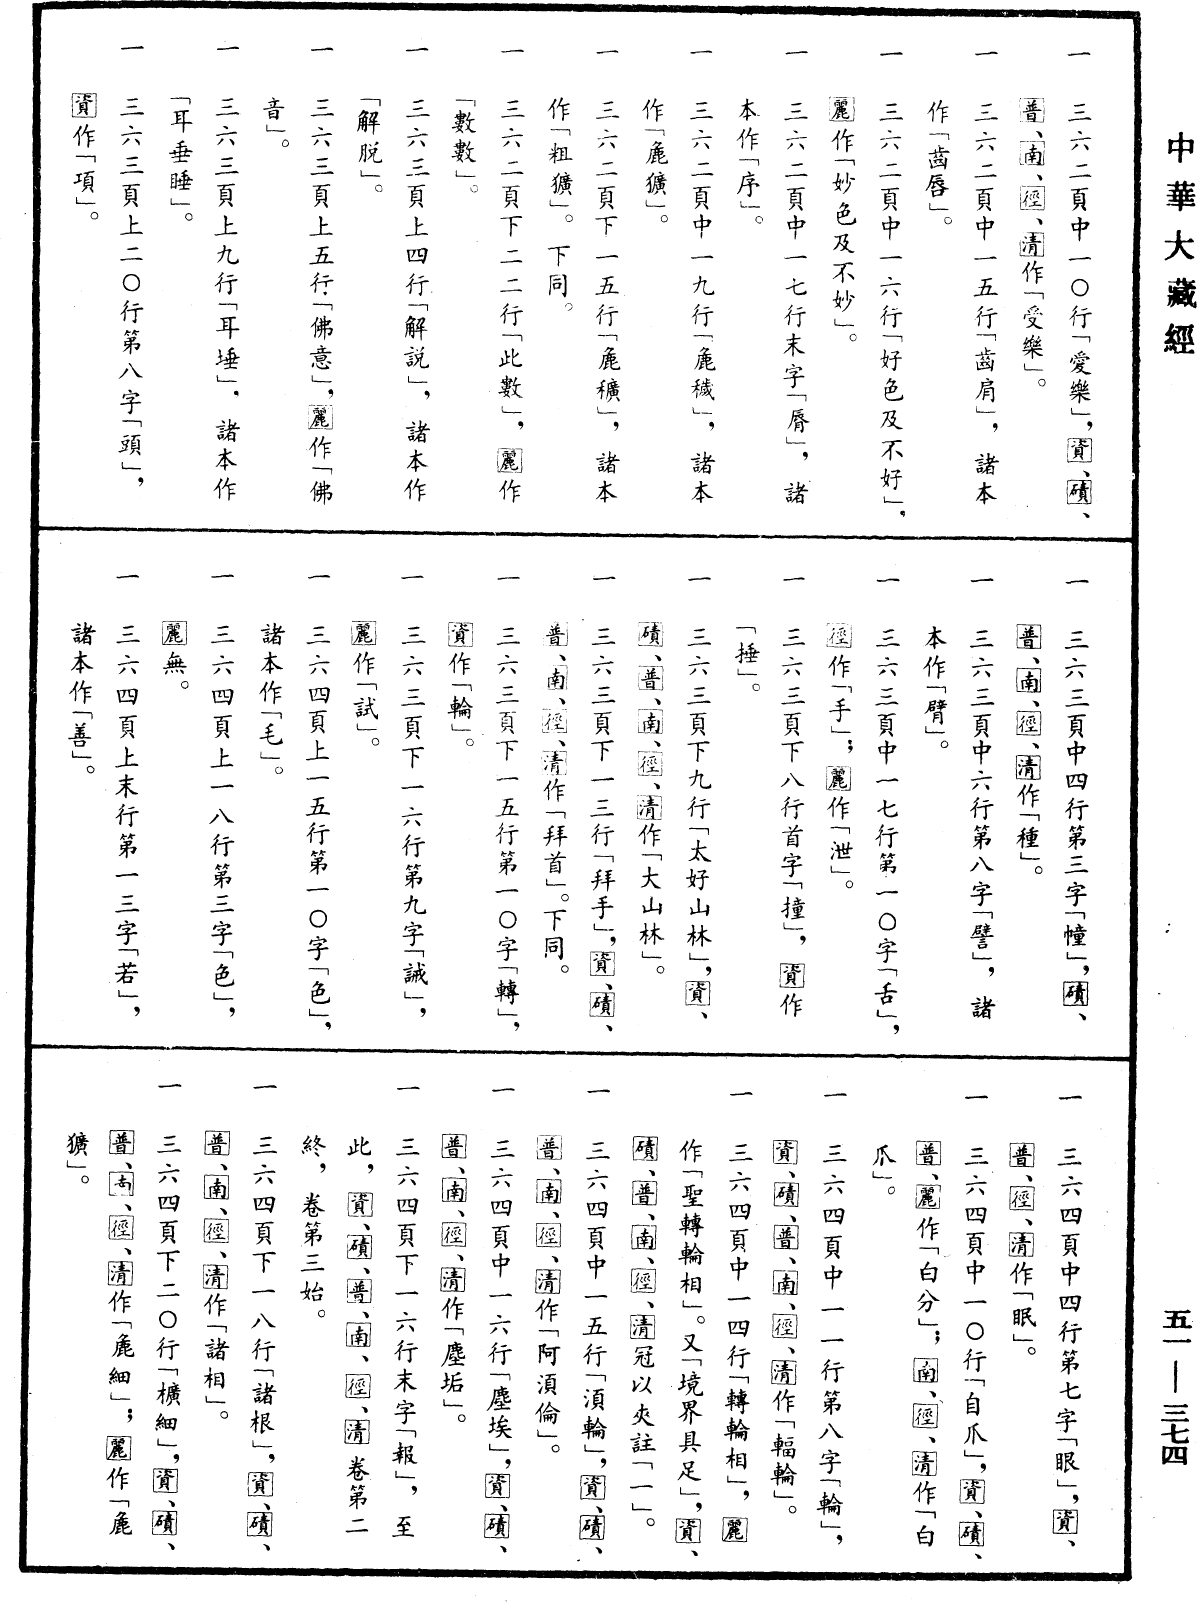 中華大藏經
一　三六二頁中一〇行「愛樂」，資、磧、
普、南、徑、清作「受樂」。
一　三六二頁中一五行「齒肩」，諸本
作「齒唇」。
一　三六二頁中一六行「好色及不好」，
麗作「妙色及不妙」。
一　三六二頁中一七行末字「脣」，諸
本作「序」。
一　三六二頁中一九行「麁穢」，諸本
作「麁獷」。
一　三六二頁下一五行「麁穬」，諸本
作「粗獷」。下同。
一　三六二頁下二二行「此數」，麗作
「數數」。
一　三六三頁上四行「解説」，諸本作
「解脱」。
一　三六三頁上五行「佛意」，麗作「佛
音」。
一　三六三頁上九行「耳埵」，諸本作
「耳垂睡」。
一　三六三頁上二〇行第八字「頭」，
資作「項」。
一　三六三頁中四行第三字「幢」，磧、
普、南、徑、清作「種」。
一　三六三頁中六行第八字「譬」，諸
本作「臂」。
一　三六三頁中一七行第一〇字「舌」，
徑作「手」；麗作「泄」。
一　三六三頁下八行首字「撞」，資作
「捶」。
一　三六三頁下九行「太好山林」，資、
磧、普、南、徑、清作「大山林」。
一　三六三頁下一三行「拜手」，資、磧、
普、南、徑、清作「拜首」。下同。
一　三六三頁下一五行第一〇字「轉」，
資作「輪」。
一　三六三頁下一六行第九字「誡」，
麗作「試」。
一　三六四頁上一五行第一〇字「色」，
諸本作「毛」。
一　三六四頁上一八行第三字「色」，
麗無。
一　三六四頁上末行第一三字「若」，
諸本作「善」。
一　三六四頁中四行第七字「眼」，資、
普、徑、清作「眠」。
一　三六四頁中一〇行「自爪」，資、磧、
普、麗作「白分」；南、徑、清作「白
爪」。
一　三六四頁中一一行第八字「輪」，
資、磧、普、南、徑、清作「輻輪」。
一　三六四頁中一四行「轉輪相」，麗
作「聖轉輪相」。又「境界具足」，資、
磧、普、南、徑、清冠以夾註「一」。
一　三六四頁中一五行「湏輪」，資、磧、
普、南、徑、清作「阿湏倫」。
一　三六四頁中一六行「塵埃」，資、磧、
普、南、徑、清作「塵垢」。
一　三六四頁下一六行末字「報」，至
此，資、磧、普、南、徑、清卷第二
終，卷第三始。
一　三六四頁下一八行「諸根」，資、磧、
普、南、徑、清作「諸相」。
一　三六四頁下二〇行「櫎細」，資、磧、
普、南、徑、清作「麁細」；麗作「麁
獷」。
五一—三七四